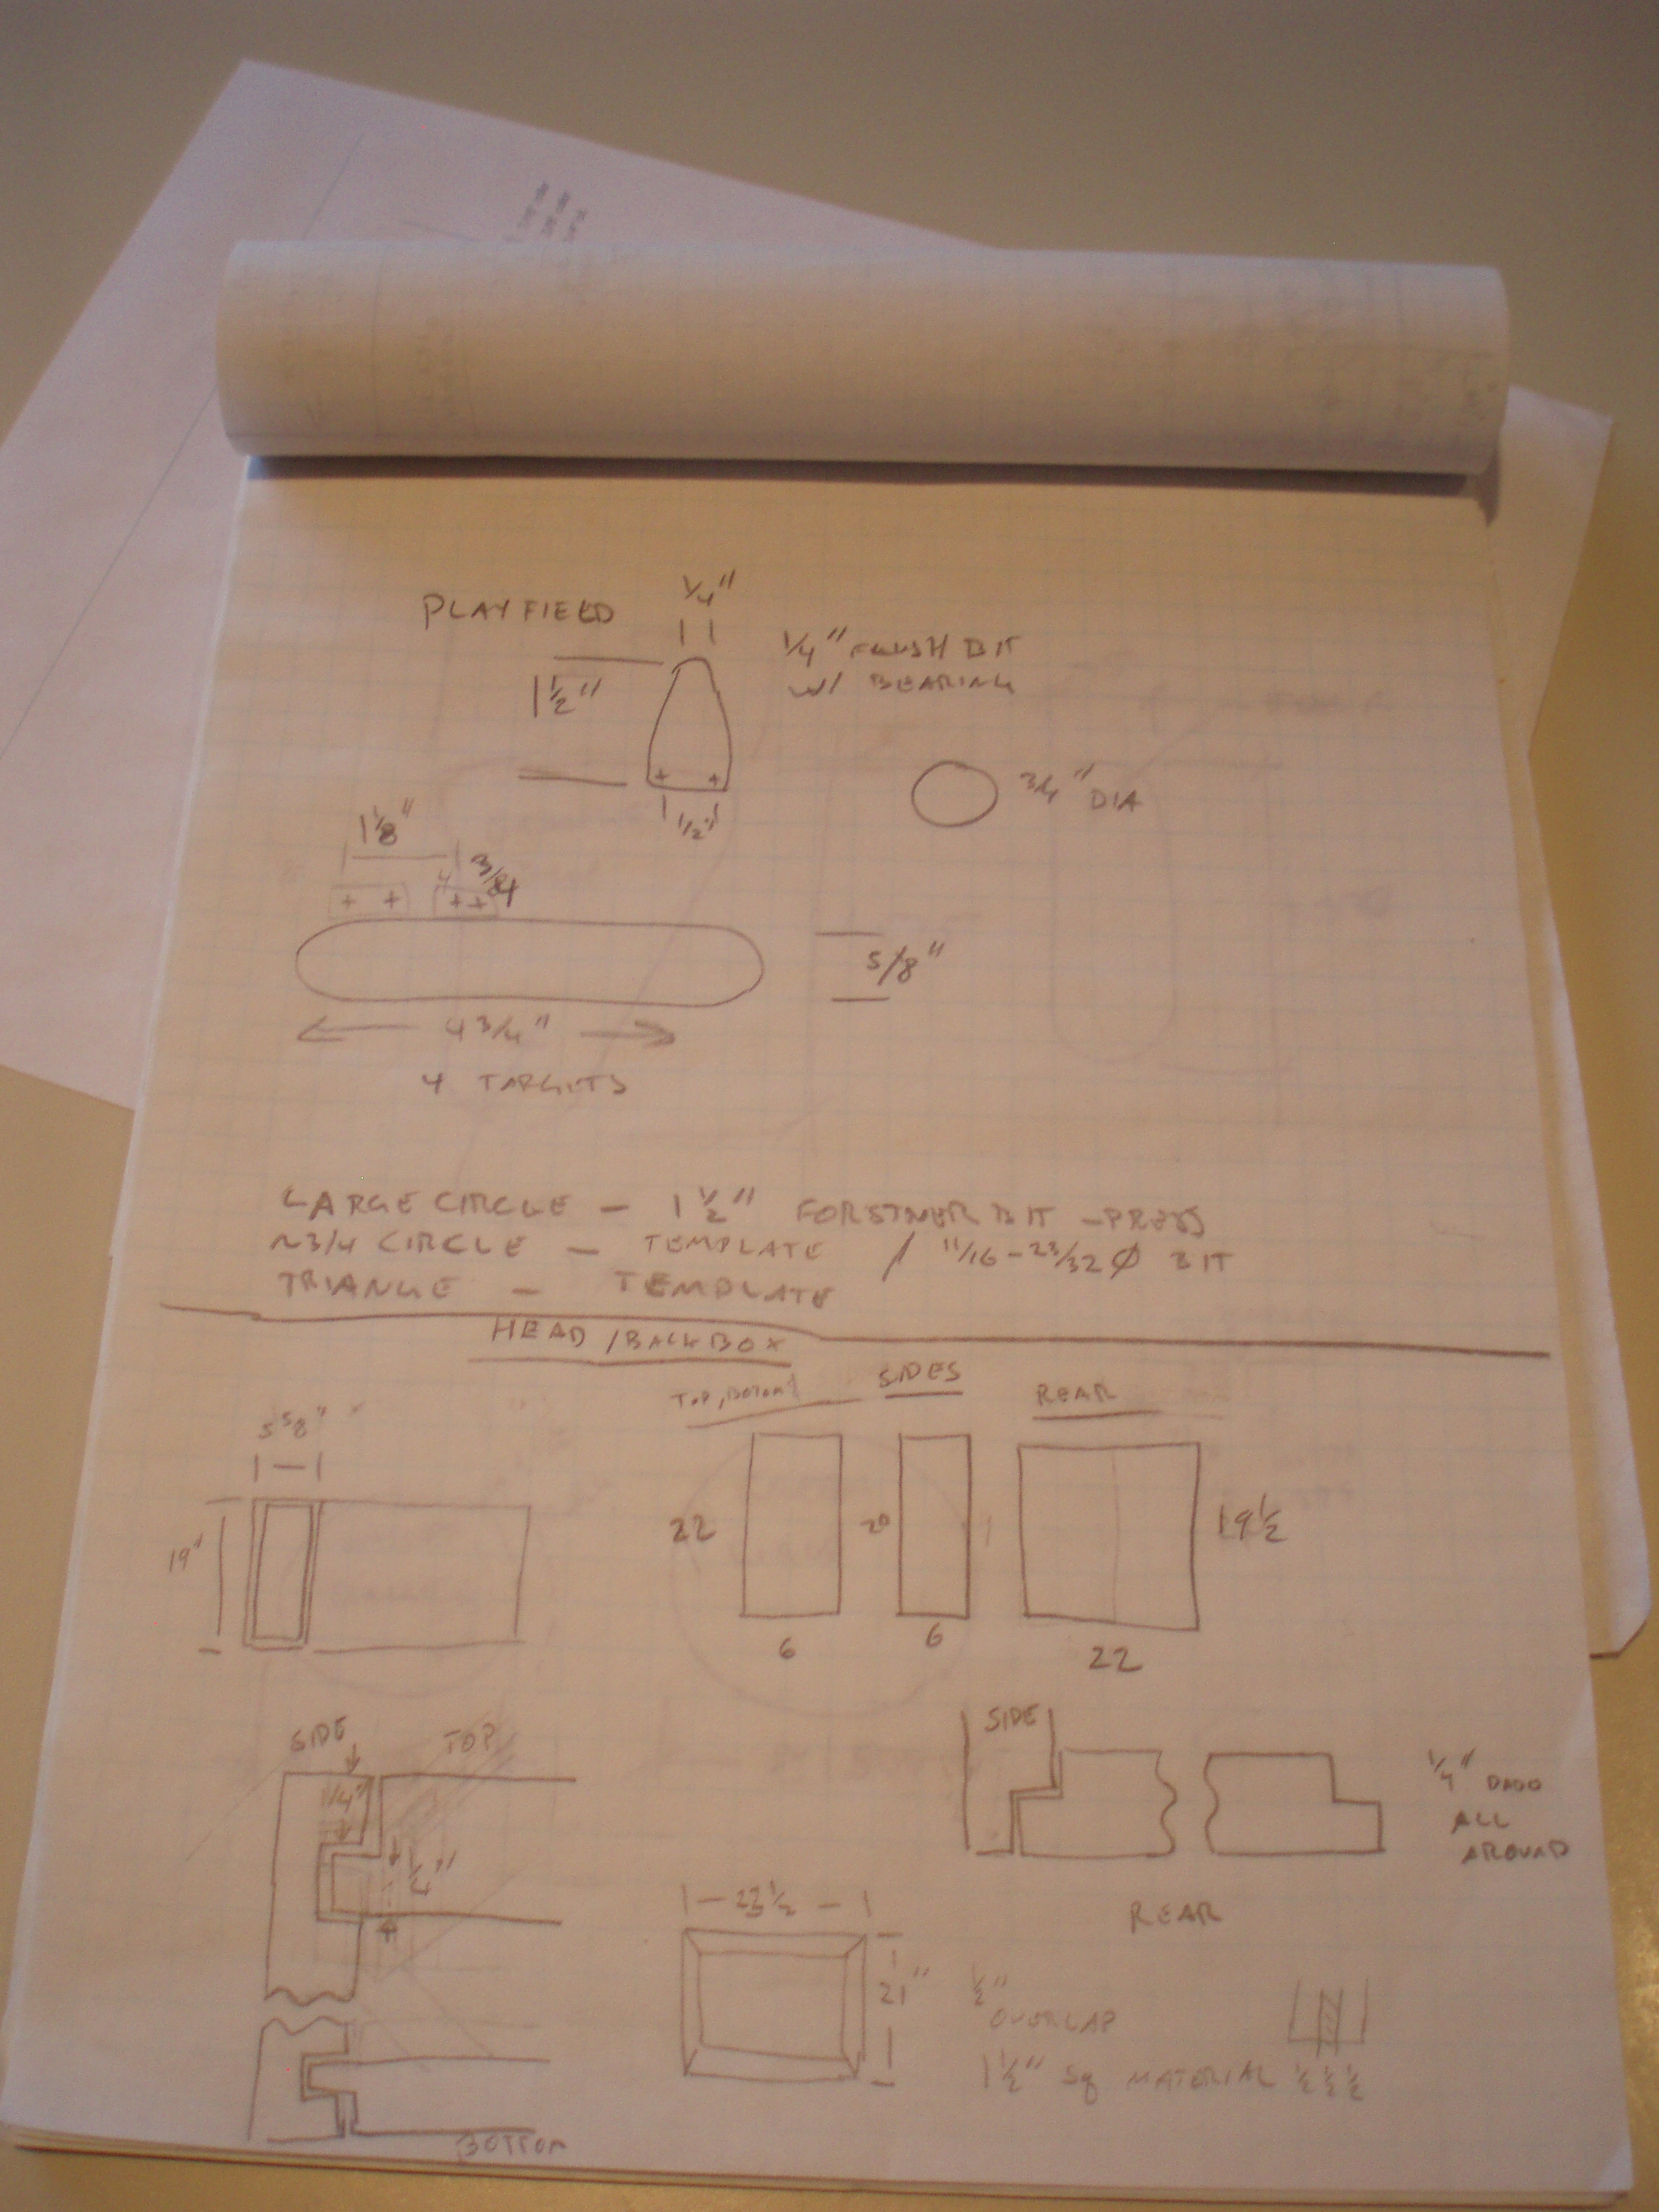 PLAYFIELD
1/4"
1/4" FLUSH BIT
W/ BEARING
1 1/2"
3/4" DIA
1/2"
1 1/8"
5/8"
4 3/4"
4 TARGETS
LARGE CIRCLE - 1 1/2" FORSTNER BIT - PRESS
~3/4 CIRCLE - TEMPLATE / 11/16 - 23/32 Ø BIT
TRIANGLE - TEMPLATE
HEAD / BACKBOX
TOP, BOTTOM
SIDES
REAR
5 5/8"
19"
22
20
19 1/2
6
6
22
SIDE
TOP
SIDE
1/4"
1/4"
1/4" DADO
ALL
AROUND
REAR
23 1/2
21"
1/2"
OVERLAP
1 1/2" SQ MATERIAL 1/2 1/2 1/2
BOTTOM